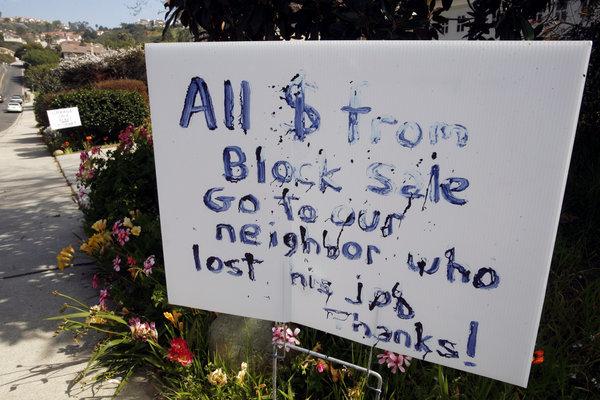 All $ from
Block Sale
Go to our
neighbor who
lost his job
Thanks!